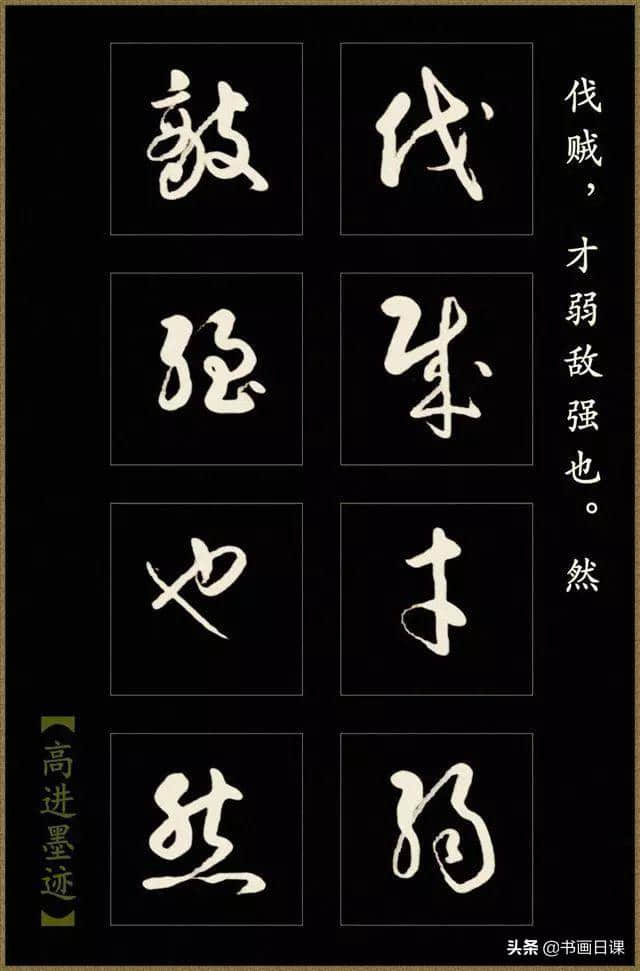 伐贼，才弱敌强也。然
伐贼才弱
敌强也然
【高进墨迹】
头条 @书画日课